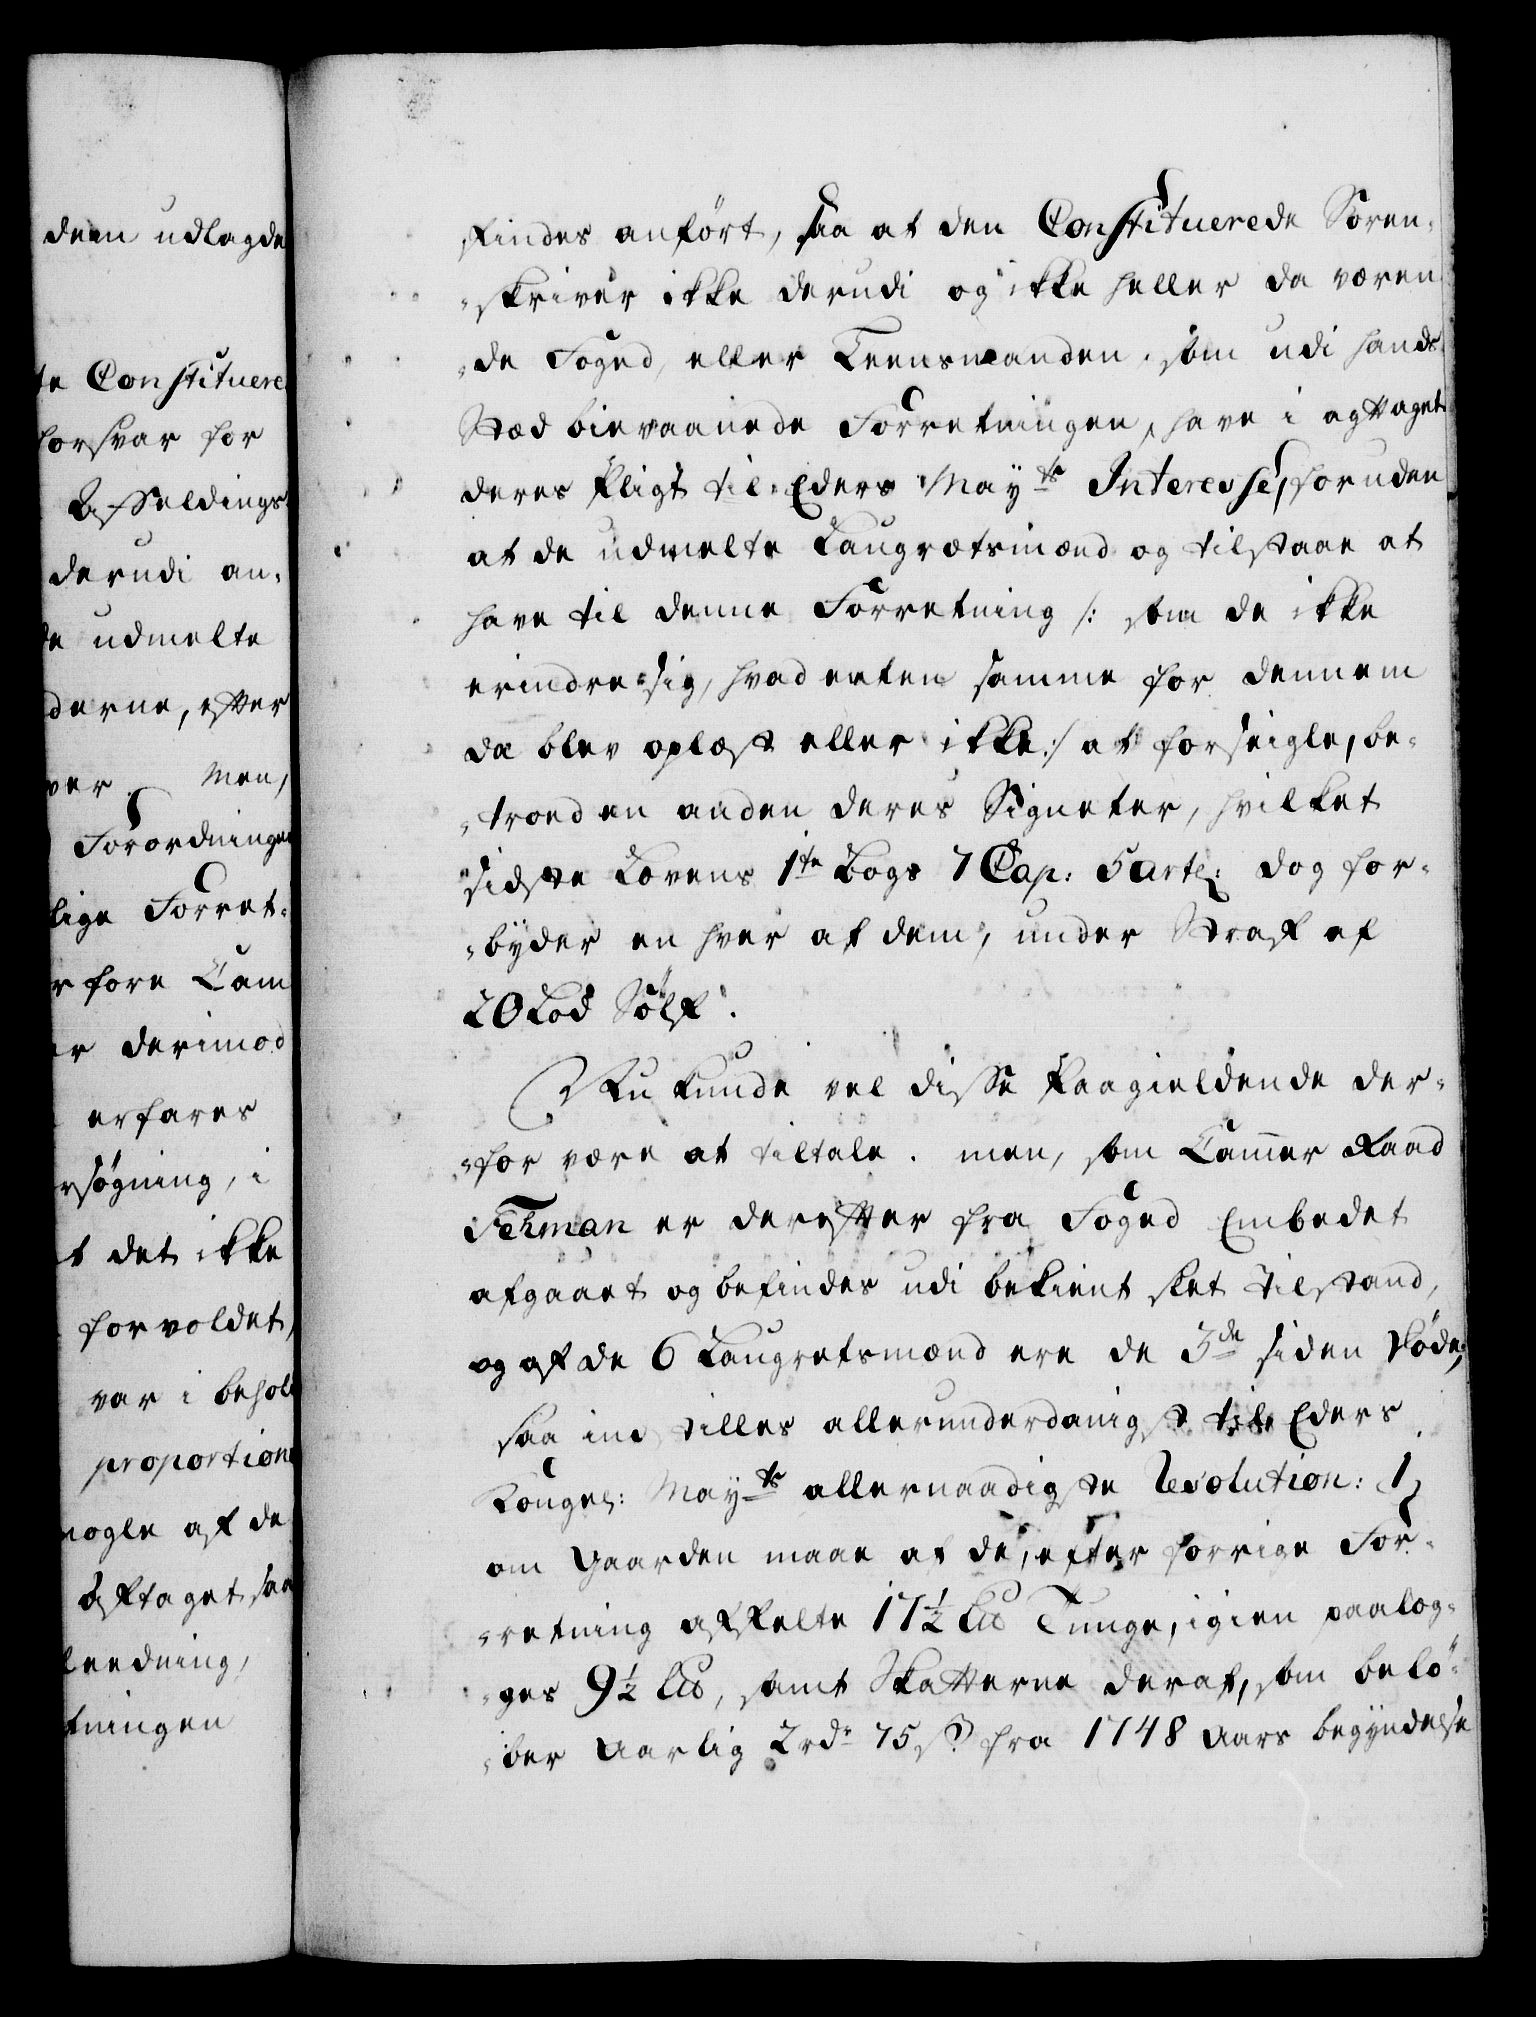 dem udlagde
te Constituere
forsvar for
Affeldings
derudi an-
de udmelte
derne, efter
ver. Men,
Forordningen
lige Forret-
r fore Cam
er derimod
erfares
rsøgning, i
t det ikke
forvoldet,
var i behold
proportion
nogle af de
aftaget saa
leedning,
tningen
findes anført, saa at den Constituerede Soren-
-skriver ikke derudi og ikke heller da væren
-de Foged, eller Leensmanden, som udi hands
Stæd bievaanede Forretningen, have i agttaget
deres Pligt til Eders May:ts Interesse, foruden
at de udmelte Laugrætsmænd og tilstaae at
have til denne Forretning /: som de ikke
erindre sig, hvad enten samme for dennem
da blev oplæst eller ikke :/ at forseigle, be-
-troed en anden deres Signeter, hvilket
sidste Lovens 1te Bogs 7 Cap: 5 Artc: dog for-
-byder en hver af dem, under Straf af
20 Lod Sølf.
Nu kunde vel disse Paagieldende der-
-for være at tiltale. men, som Cammer Raad
Fehman er derefter fra Foged Embedet
afgaaet og befindes udi bekient slet Tilstand,
og af de 6 Laugretsmænd ere de 3de siden døde;
saa indstilles allerunderdanigst til Eders
Kongel: May:ts allernaadigste Resolution: 1,
om Gaarden maae af de, efter forrige For-
-retning affelte 17½ Lib Tunge, igien paalæg-
-ges 9½ Lib, samt Skatterne deraf, som belø-
-ber Aarlig 2 rdr 75 s. fra 1748 Aars begyndelse